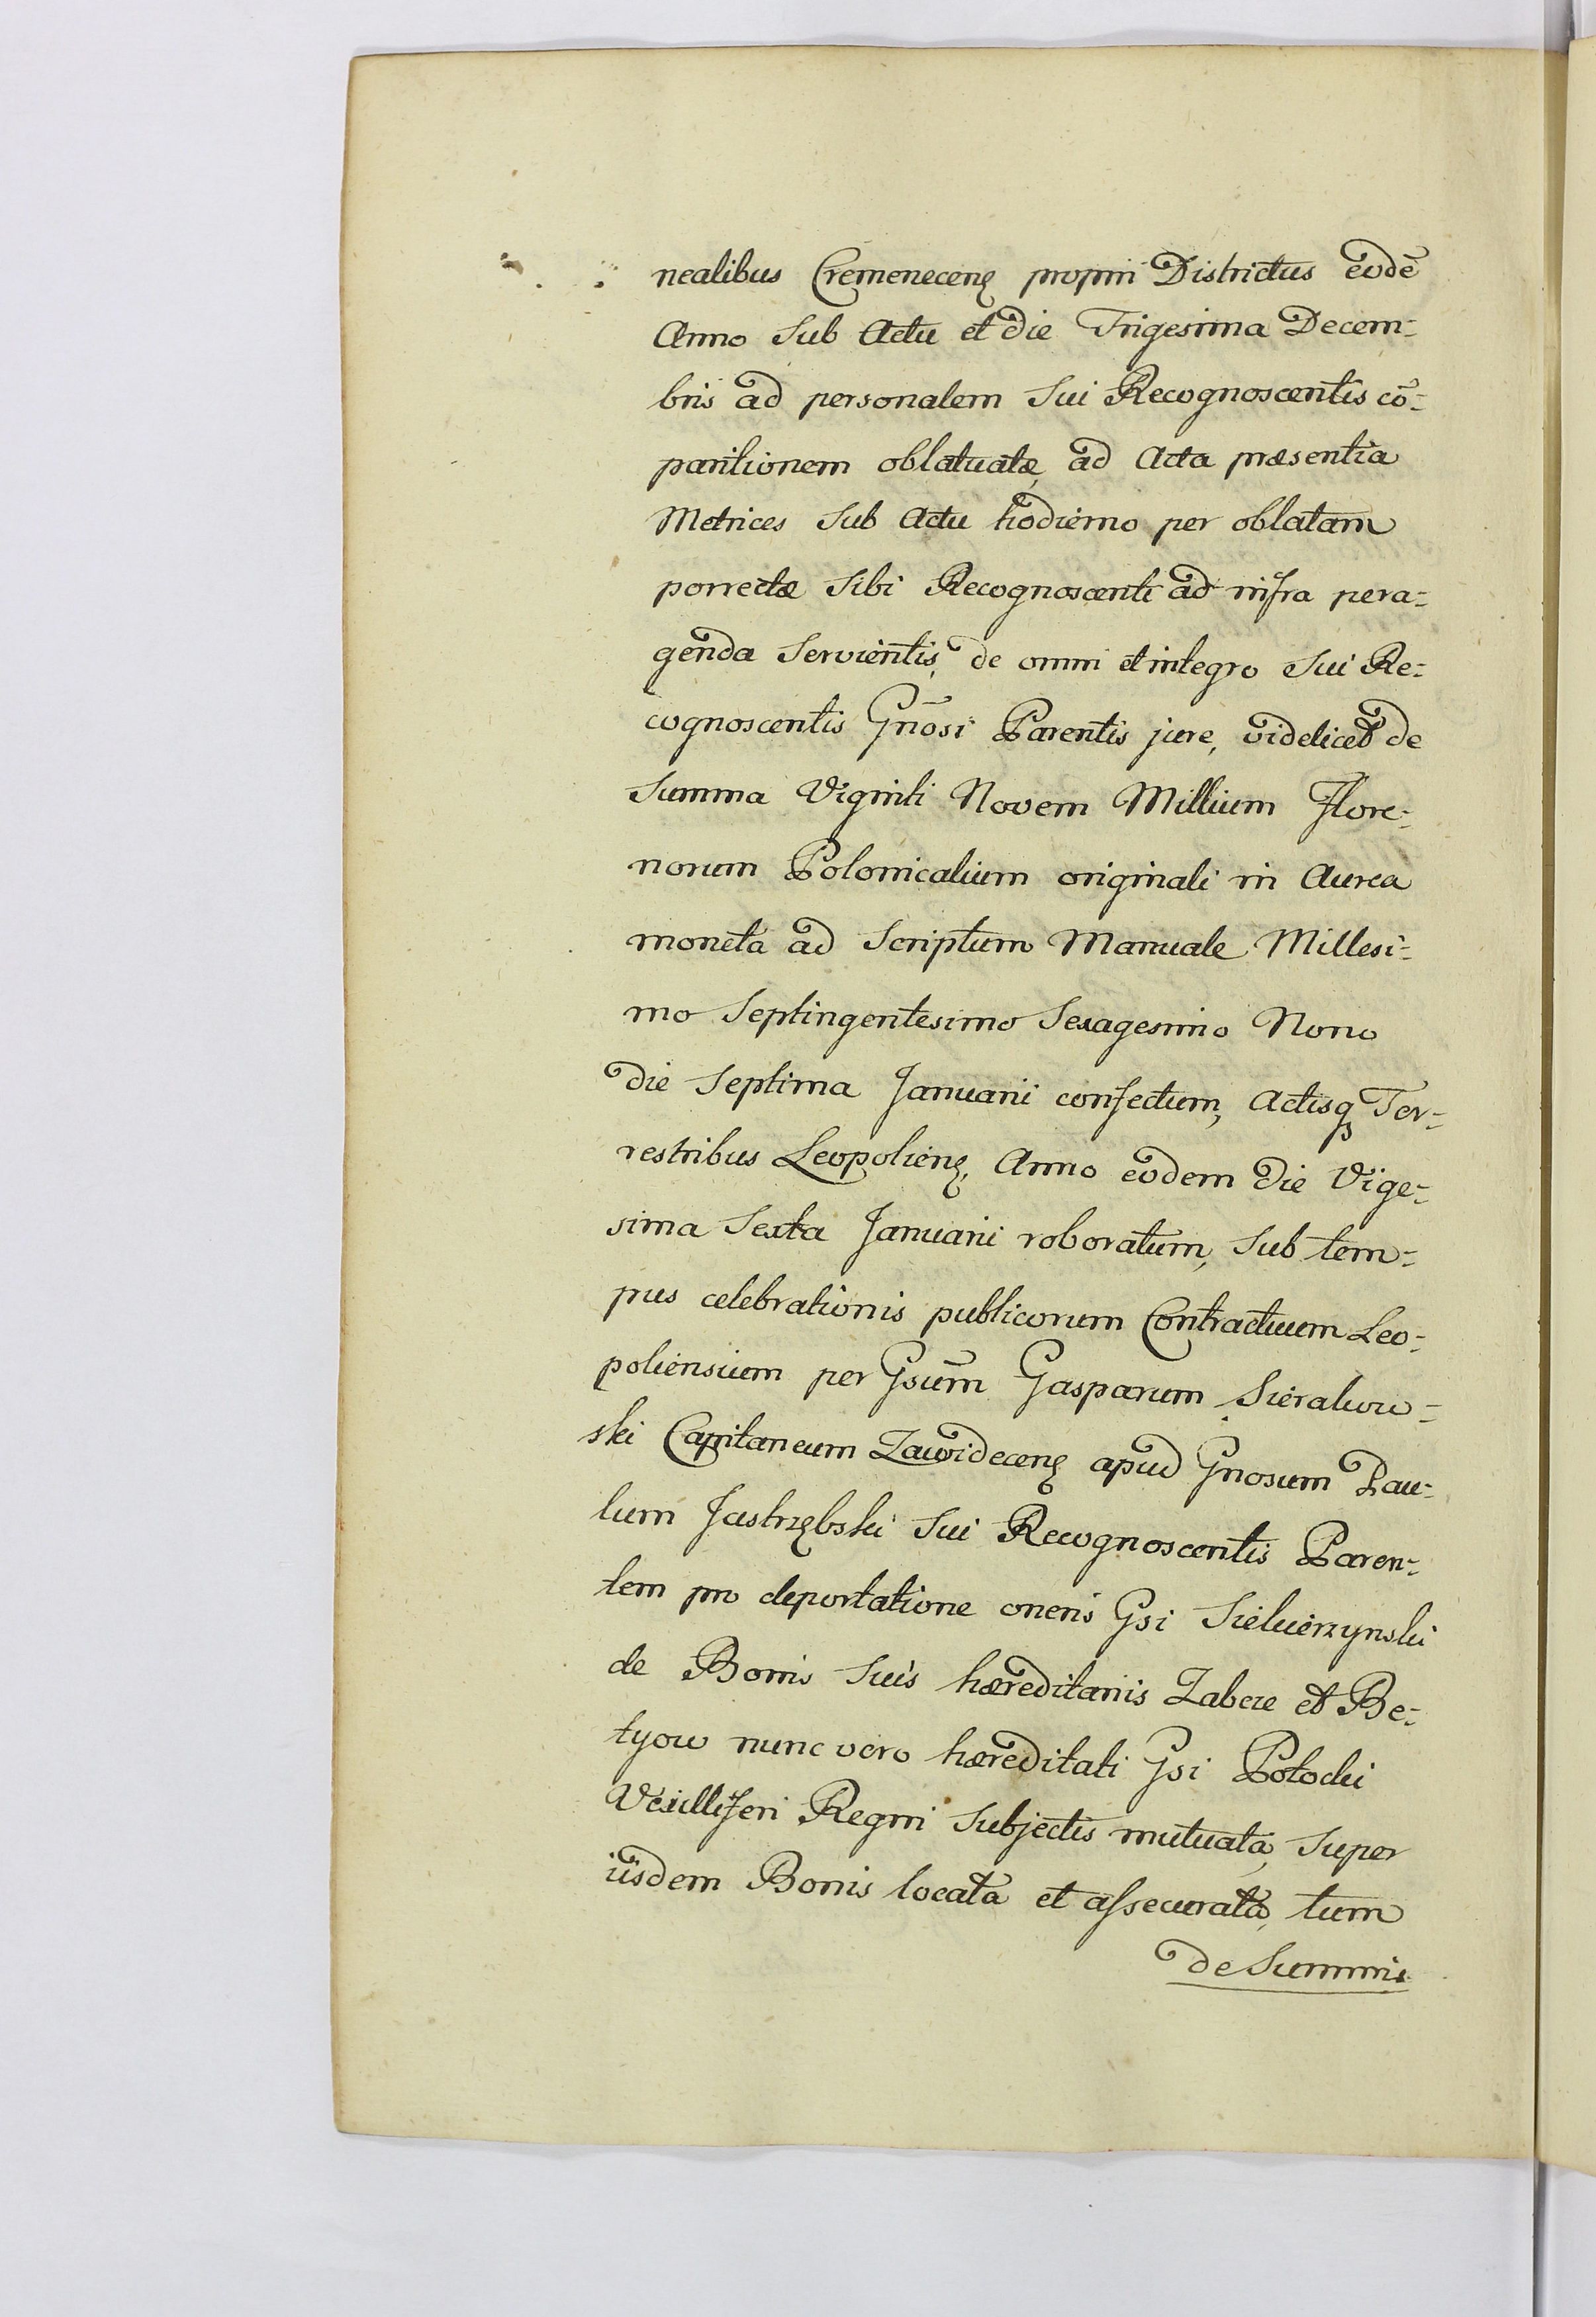 nealibus Cremenecenę proprii Districtus eodē
Anno Sub Actu et die Trigesima Decem-
bris ad personalem Sui Recognoscentis cō-
paritionem oblatuatæ, ad Acta præsentia
Metrices Sub Actu hodierno per oblatam
porrectæ Sibi Recognoscenti ad infra pera-
genda Servientis, de omni et integro Sui Re-
cognoscentis Gnōsi Parentis jure, videlicet de
Summa Viginti Novem Millium Flore-
norum Polonicalium originali in Aurea
moneta ad Scriptum Manuale Millesi-
mo Septingentesimo Sexagesimo Nono
die Septima Januarii confectum, Actisqꝫ Ter-
restribus Leopolienę, Anno eodem die Vige-
sima Sexta Januarii roboratum, Sub tem-
pus celebrationis publicorum Contractuum Leo-
poliensium per Gsum̄ Gasparum Sierakow-
ski Capitaneum Zawidecenę apud Gnosum Pau-
lum Jastrzębski Sui Recognoscentis Paren-
tem pro deportatione oneris Gsi Siekierzynski
de Bonis Suis hæreditariis Zabcze et Be-
tyow nunc vero hæreditati Gsi Potocki
Vexilliferi Regni Subjectis mutuata, Super
iisdem Bonis locata et assecurata, tum
de Summis